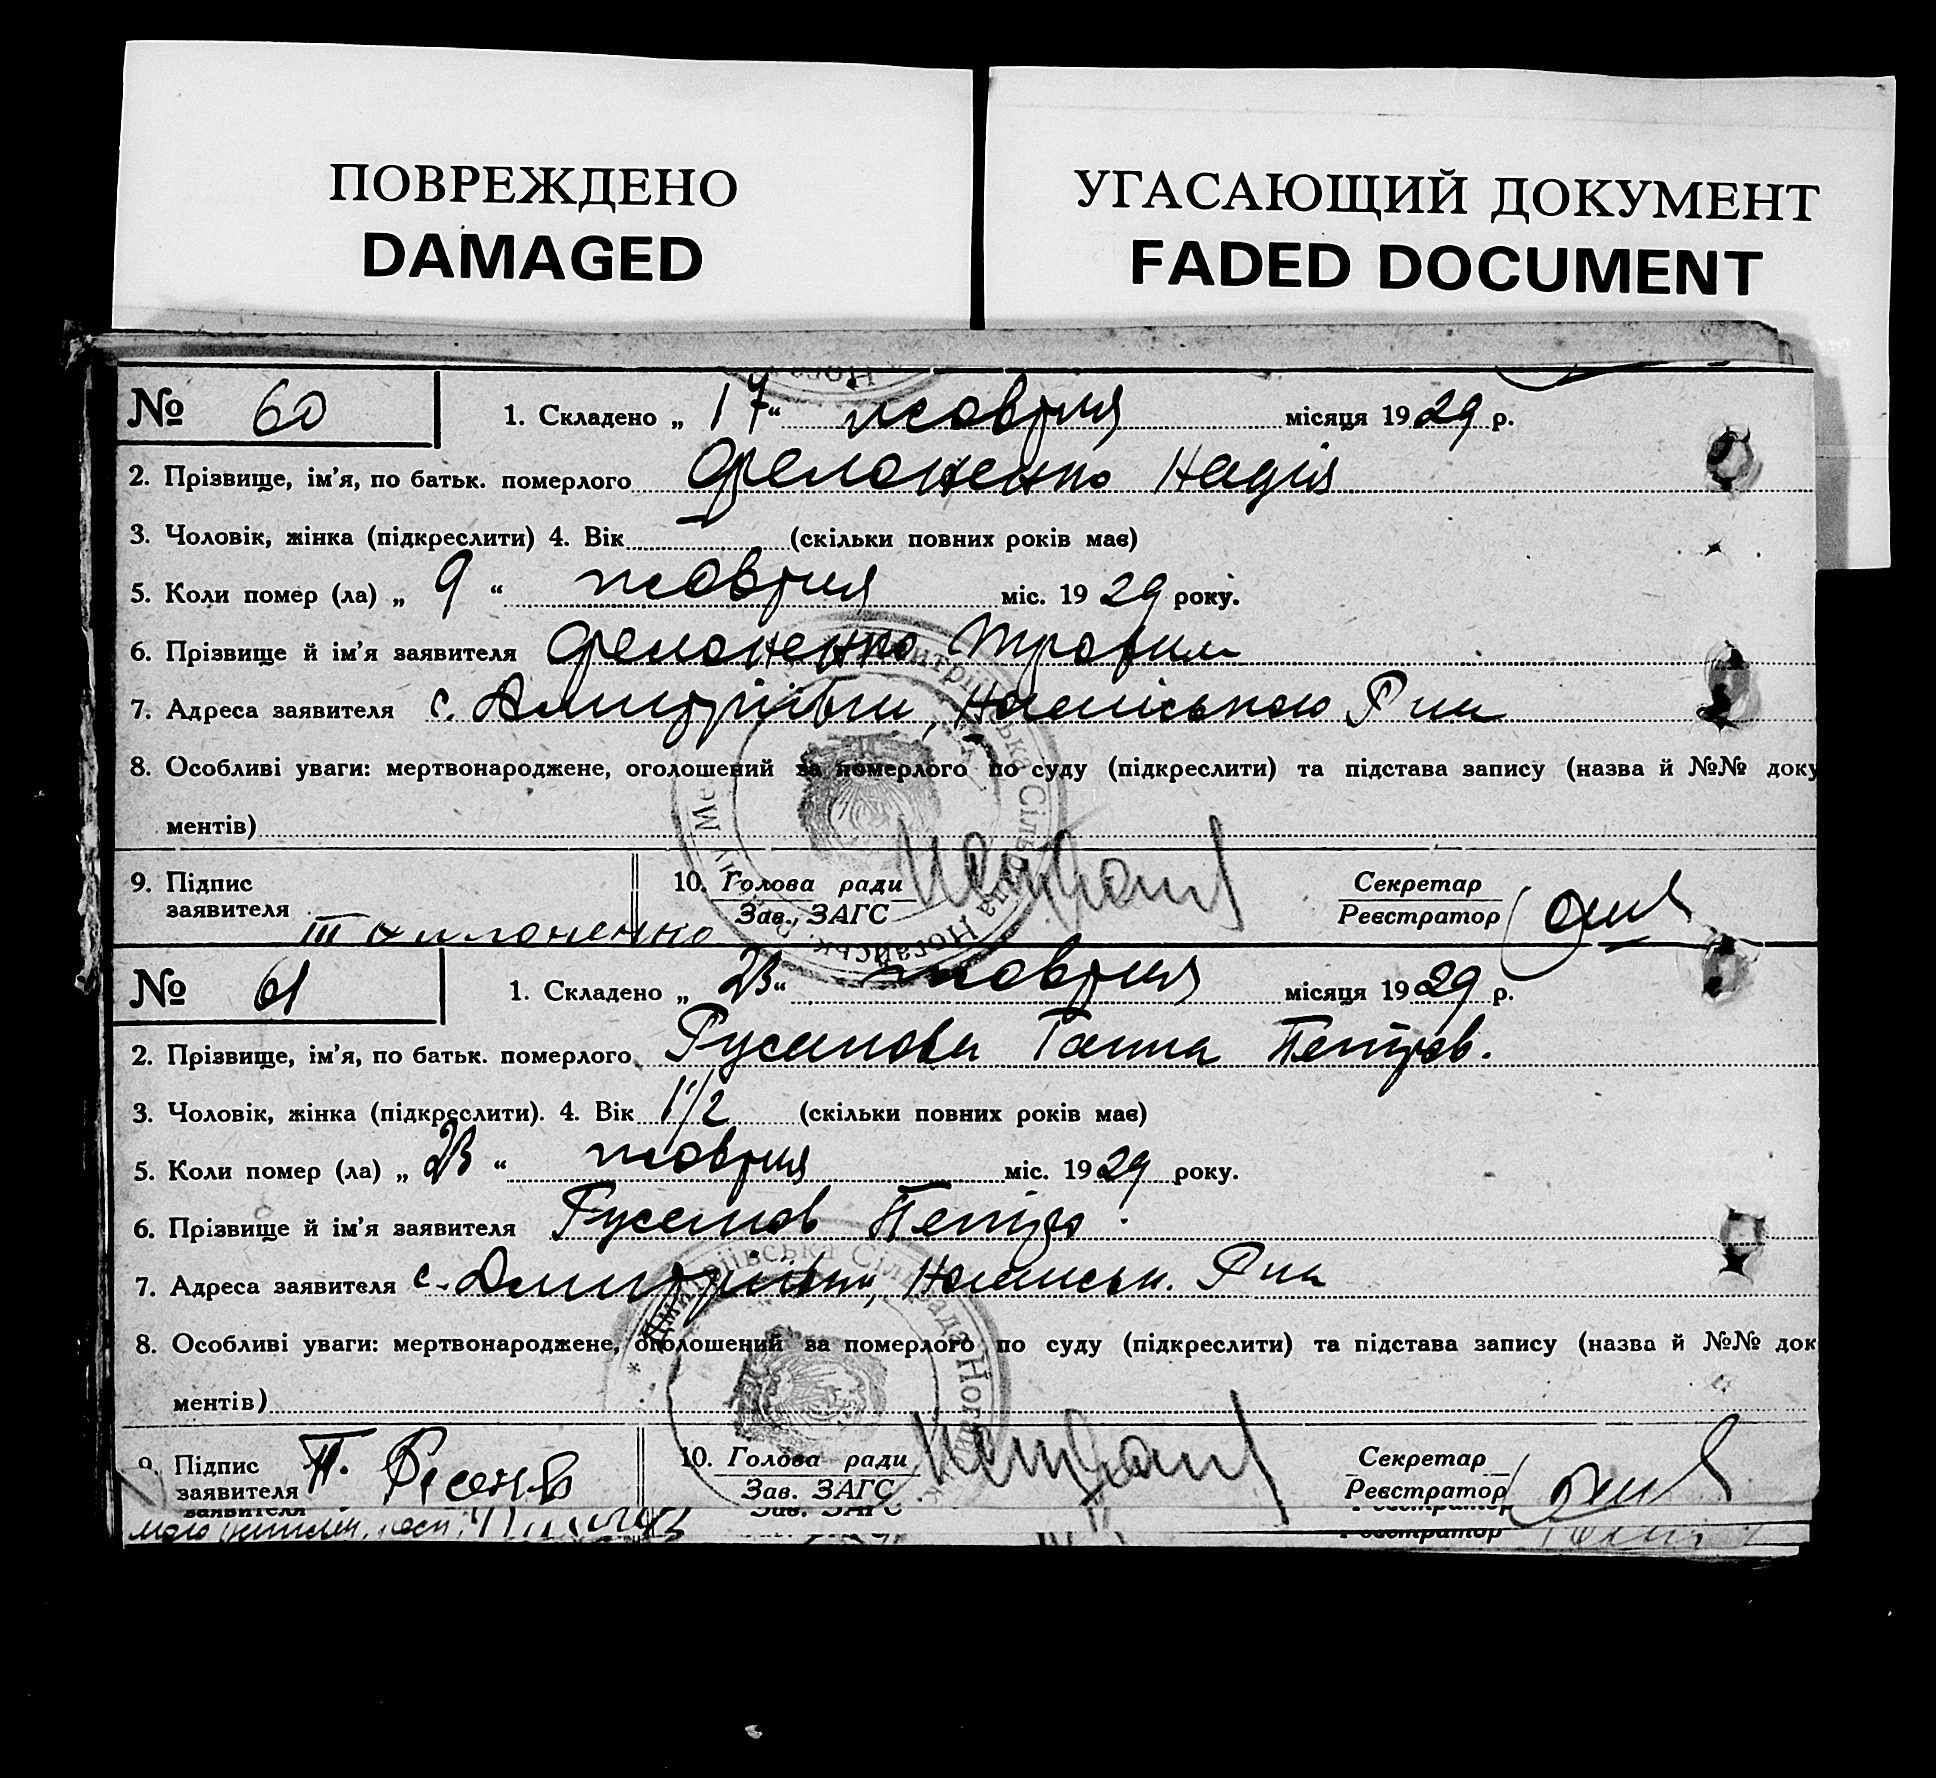 ПОВРЕЖДЕНО
DAMAGED
УГАСАЮЩИЙ ДОКУМЕНТ
FADED DOCUMENT
№ 60
1. Складено „ 17 “ жовтня місяця 1929 р.
2. Прізвище, ім'я, по батьк. померлого Филоненко Надія
3. Чоловік, жінка (підкреслити) 4. Вік (скільки повних років має)
5. Коли помер (ла) „ 9 “ жовтня міс. 1929 року.
6. Прізвище й ім'я заявителя Филоненко Трофим
7. Адреса заявителя с. Дмитрівки,
8. Особливі уваги: мертвонароджене, оголошений за померлого по суду (підкреслити) та підстава запису (назва й №№ доку
ментів)
9. Підпис
заявителя
10. Голова ради
Зав. ЗАГС
Секретар
Реєстратор
№ 61
1. Складено „ 23 “ жовтня місяця 1929 р.
2. Прізвище, ім'я, по батьк. померлого Русанова Ганна Петров.
3. Чоловік, жінка (підкреслити). 4. Вік 1 1/2 (скільки повних років має)
5. Коли помер (ла) „ 23 “ жовтня міс. 1929 року.
6. Прізвище й ім'я заявителя Русанов Петро
7. Адреса заявителя с. Дмитрівки,
8. Особливі уваги: мертвонароджене, оголошений за померлого по суду (підкреслити) та підстава запису (назва й №№ док
ментів)
9. Підпис
заявителя
10. Голова ради
Зав. ЗАГС
Секретар
Реєстратор